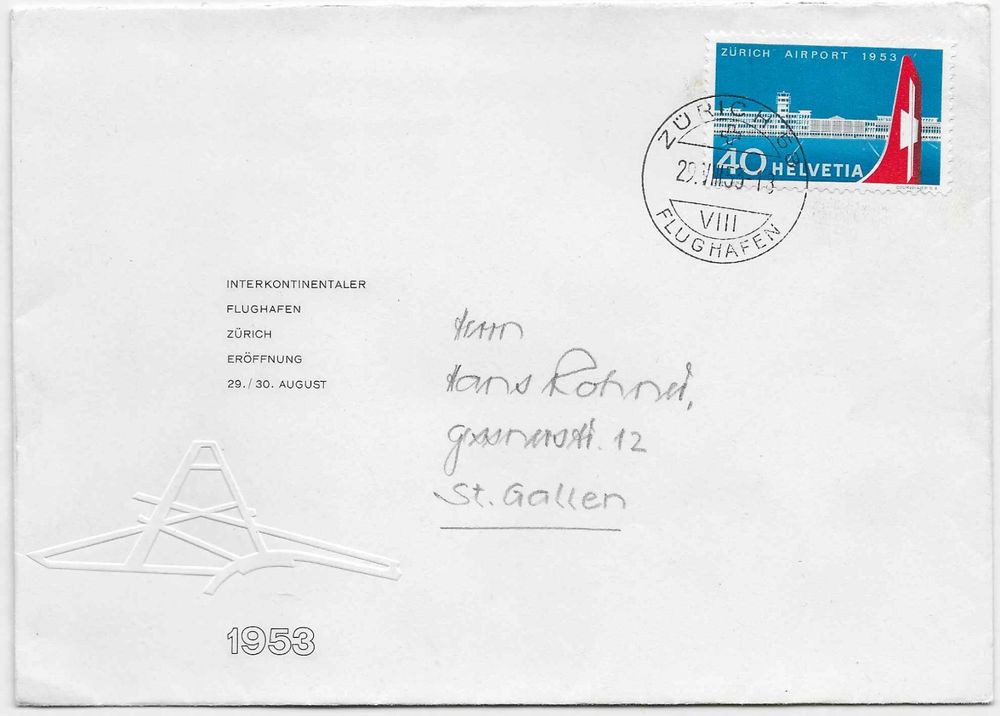 ZÜRICH AIRPORT 1953
40 HELVETIA
ZÜRICH 58
29.VIII.53-13
VIII
FLUGHAFEN
INTERKONTINENTALER
FLUGHAFEN
ZÜRICH
ERÖFFNUNG
29./30. AUGUST
Herrn
Hans Rohner,
12
St. Gallen
1953